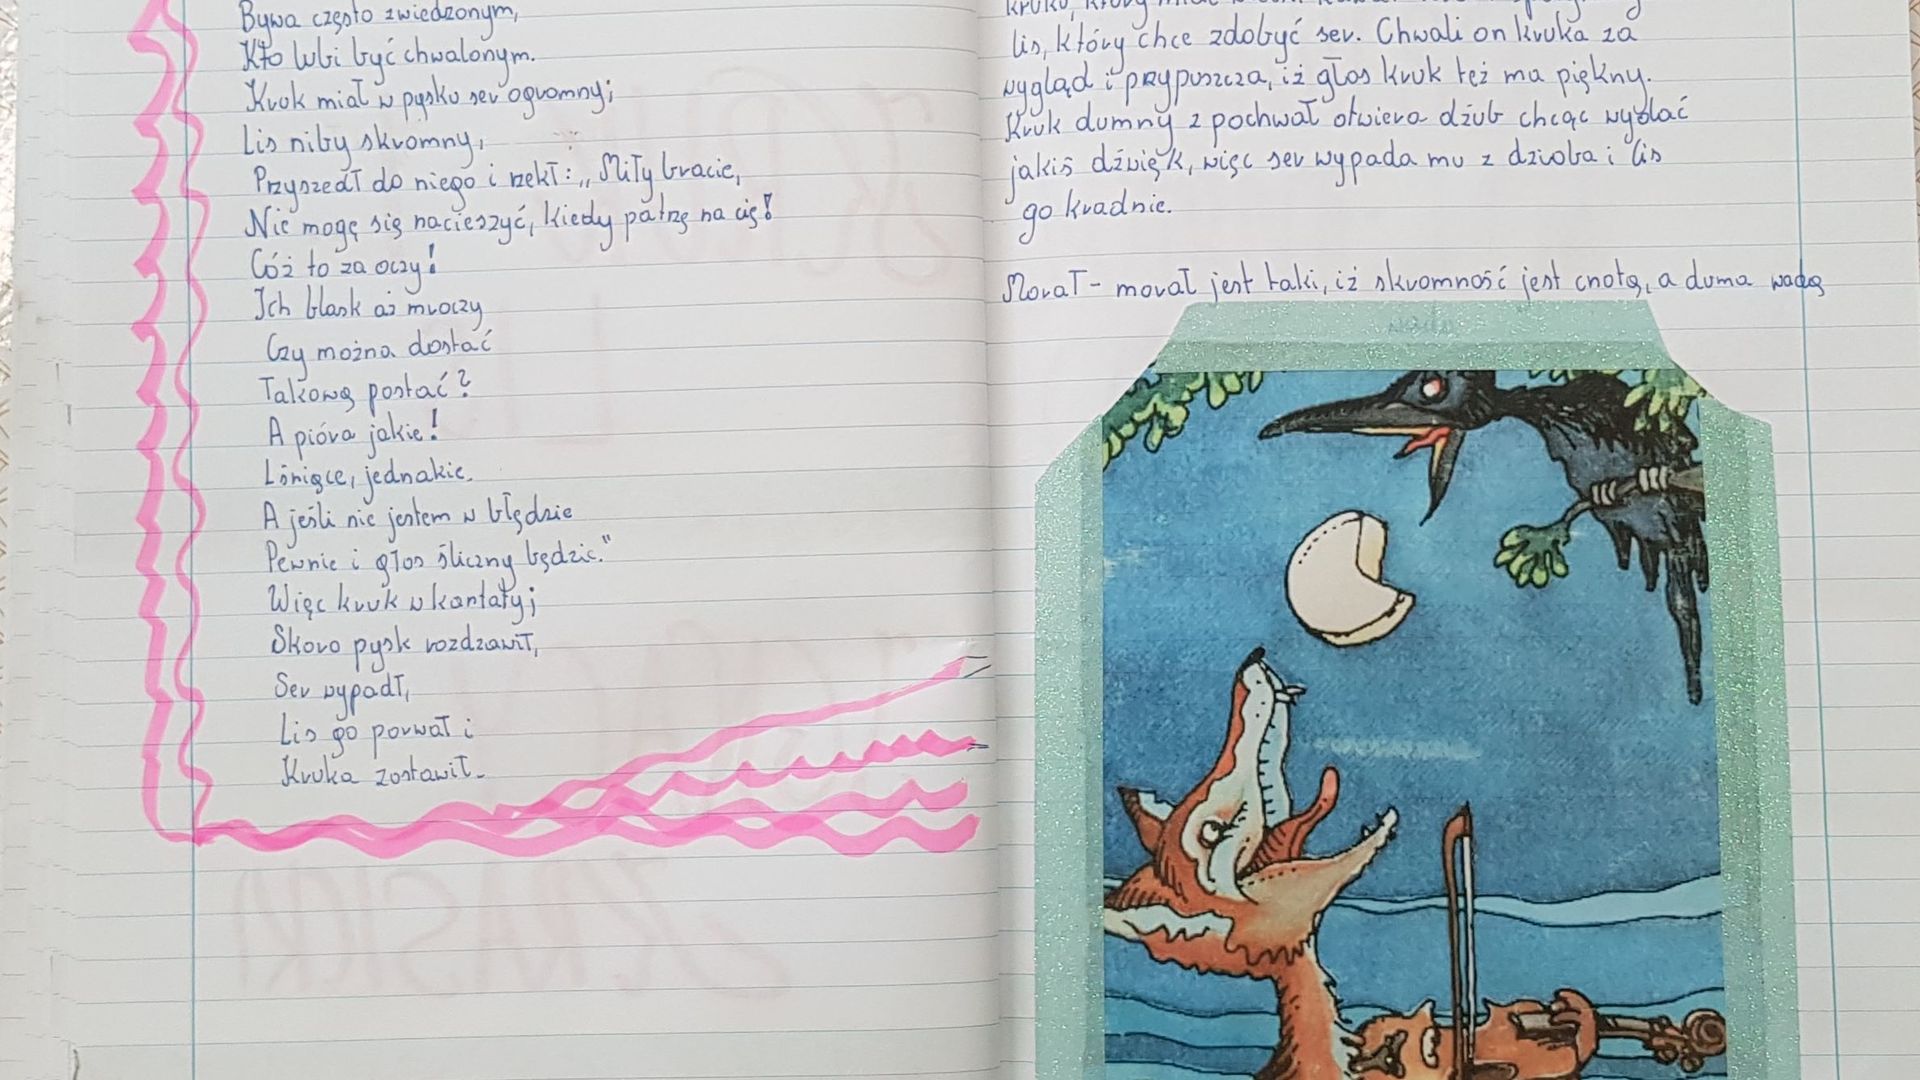 Bywa często zwiedzonym,
Kto lubi być chwalonym.
Kruk miał w pysku ser ogromny;
Lis niby skromny,
Przyszedł do niego i rzekł: „Miły bracie,
Nie mogę się nacieszyć, kiedy patrzę na cię!
Cóż to za oczy!
Ich blask aż mroczy
Czy można dostać
Takową postać?
A pióra jakie!
Lśniące, jednakie.
A jeśli nie jestem w błędzie
Pewnie i głos śliczny będzie."
Więc kruk w kantaty;
Skoro pysk rozdziawił,
Ser wypadł,
Lis go porwał i
Kruka zostawił.
lis, który chce zdobyć ser. Chwali on kruka za
wygląd i przypuszcza, iż głos kruk też ma piękny.
Kruk dumny z pochwał otwiera dziub chcąc wydać
jakiś dźwięk, więc ser wypada mu z dzioba i lis
go kradnie.
Morał - morał jest taki, iż skromność jest cnotą, a duma wadą